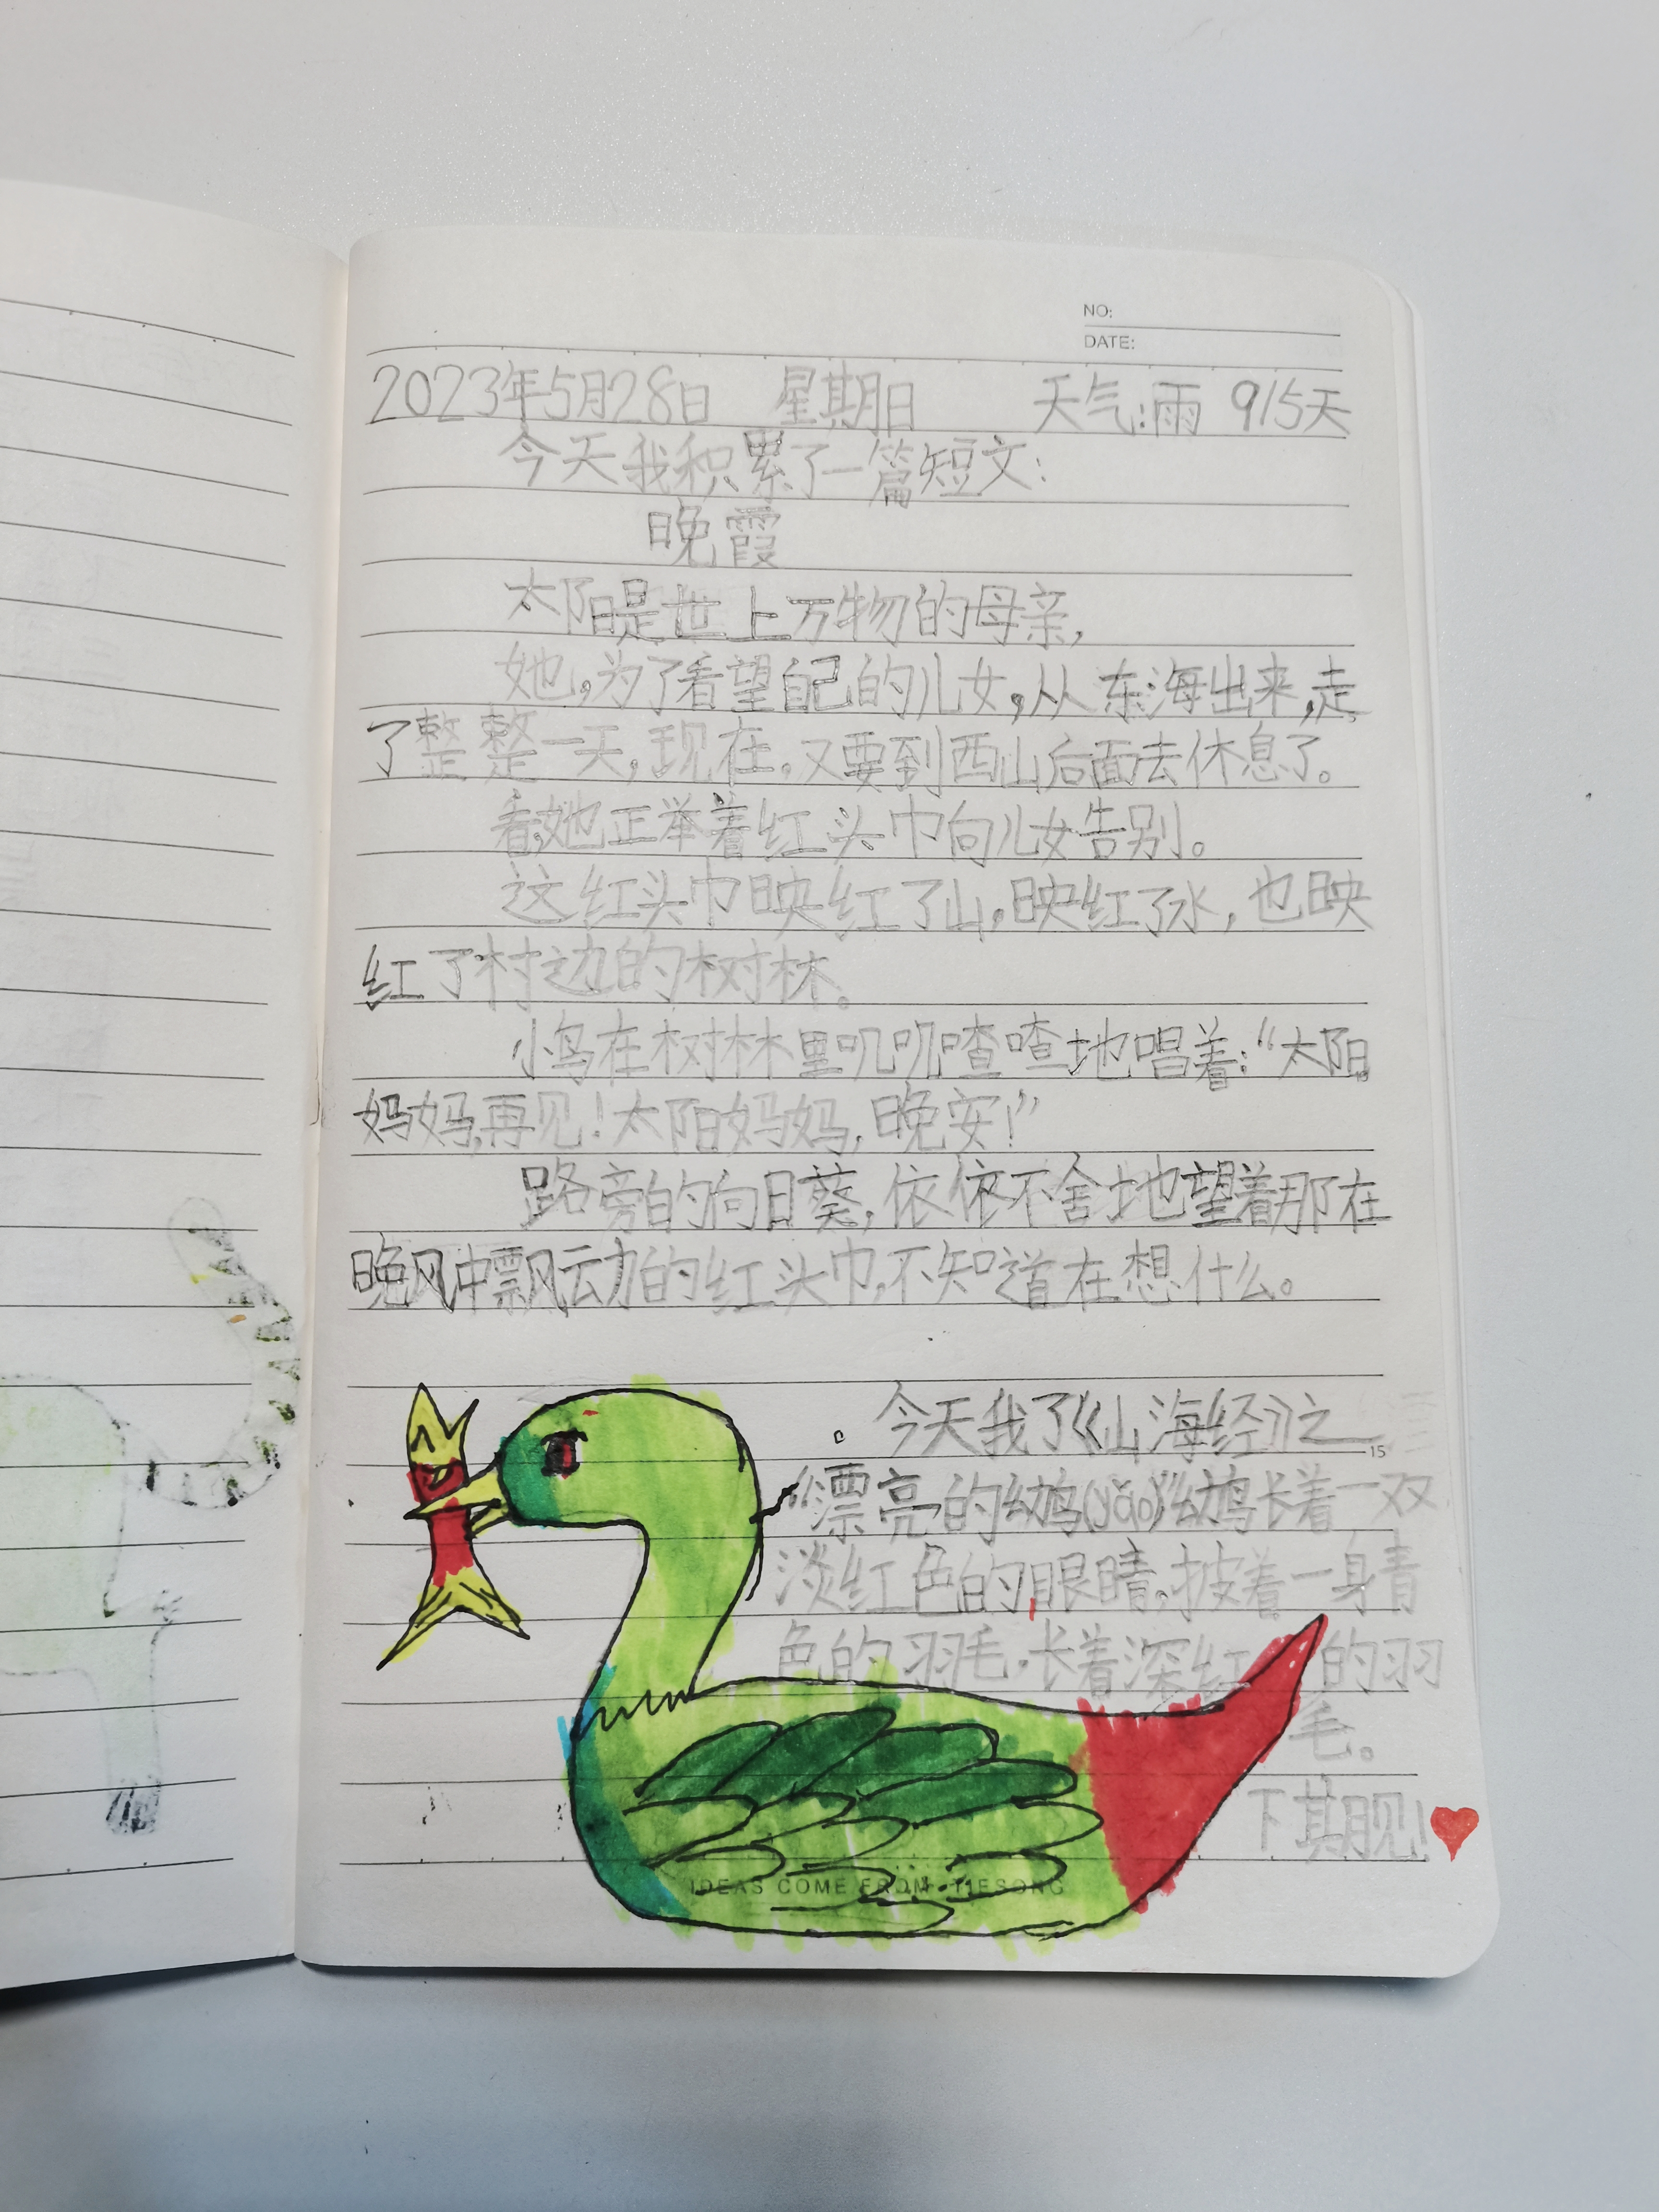 NO:
DATE:
2023年5月28日 星期日 天气:雨 915天
今天我积累了一篇短文:
晚霞
太阳是世上万物的母亲,
她,为了看望自己的儿女,从东海出来,走
了整整一天,现在,又要到西山后面去休息了。
看,她正举着红头巾向儿女告别。
这红头巾映红了山,映红了水,也映
红了村边的树林。
小鸟在树林里叽叽喳喳地唱着:“太阳
妈妈,再见!太阳妈妈,晚安!”
路旁的向日葵,依依不舍地望着那在
晚风中飘动的红头巾,不知道在想什么。
今天我了《山海经》之
15
“漂亮的幼鸟(yǎo)”幼鸟长着一双
淡红色的眼睛,披着一身青
色的羽毛,长着深红的羽
毛。
下其月见!
IDEAS COME FROM TIESONG